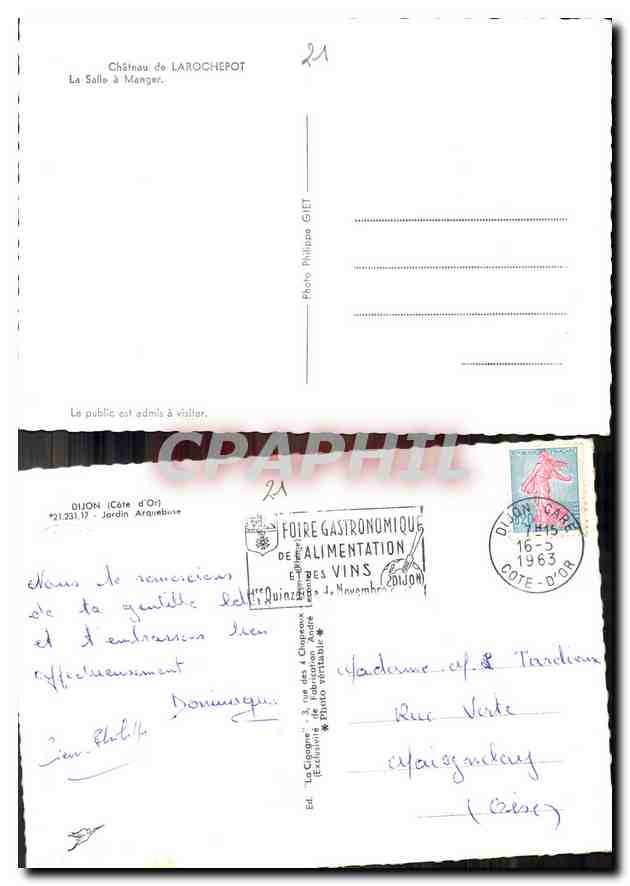 21
Château de LAROCHEPOT
La Salle à Manger.
Photo Philippe GIET
Le public est admis à visiter.
CPAPHIL
DIJON (Côte d'Or)
*21.231.17 - Jardin Arquebuse
21
FOIRE GASTRONOMIQUE
DE L'ALIMENTATION
ET DES VINS
1re Quinzaine de Novembre
DIJON
DIJON GARE
7H-15
16-5
1963
COTE-D'OR
Nous te remercions
de ta gentille lettre
et t'embrassons bien
affectueusement
Dominique
Jean-Philippe
Ed. "La Cigogne" - 3, rue des 4 Chapeaux Lyon (Rhône)
(Exclusivité de Fabrication André Leconte)
* Photo véritable *
Madame M Tardieu
Rue Verte
Maignelay
(Oise)